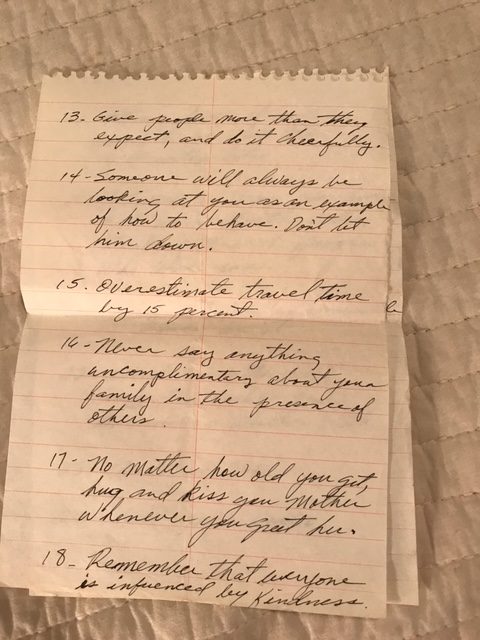 13- Give people more than they
expect, and do it cheerfully.
14- Someone will always be
looking at you as an example
of how to behave. Don't let
him down.
15. Overestimate travel time
by 15 percent.
16- Never say anything
uncomplimentary about your
family in the presence of
others.
17- No matter how old you get,
hug and kiss you Mother
whenever you greet her.
18- Remember that everyone
is infuenced by Kindness.